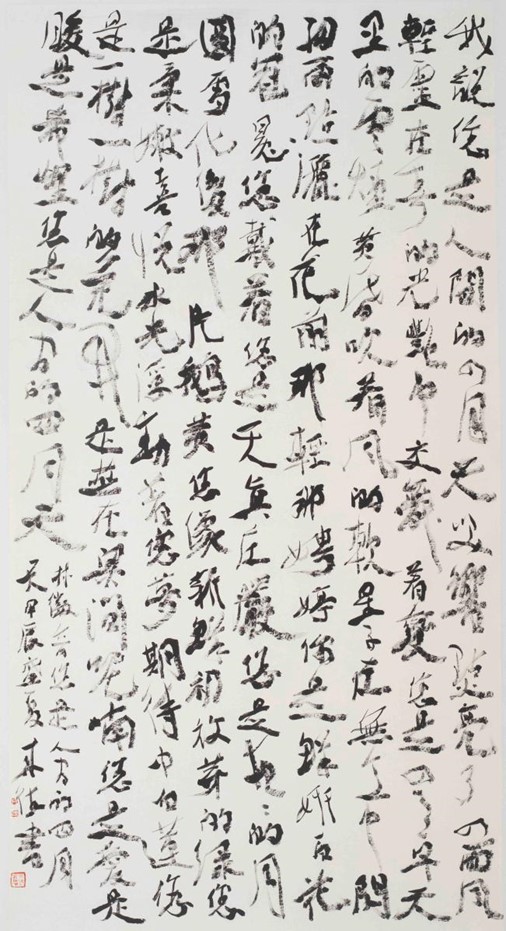 我說您是人間的四月天笑響點亮了四面風
輕靈在春的光艷中交舞着變您是四月早天
里的雲煙黃昏吹着風的軟星子在無意中閃
細雨點灑在花前那輕那娉婷你是鮮妍百花
的冠冕您戴着您是天真莊嚴您是夜夜的月
圓雪化後那片鵝黃您像新鮮初放芽的綠您
是柔嫩喜悅水光浮動着您夢期待中白蓮您
是一樹一樹的花開是燕在梁間呢喃您是愛是
暖是希望您是人间的四月天
林徽音句您是人间的四月
天甲辰盛夏書